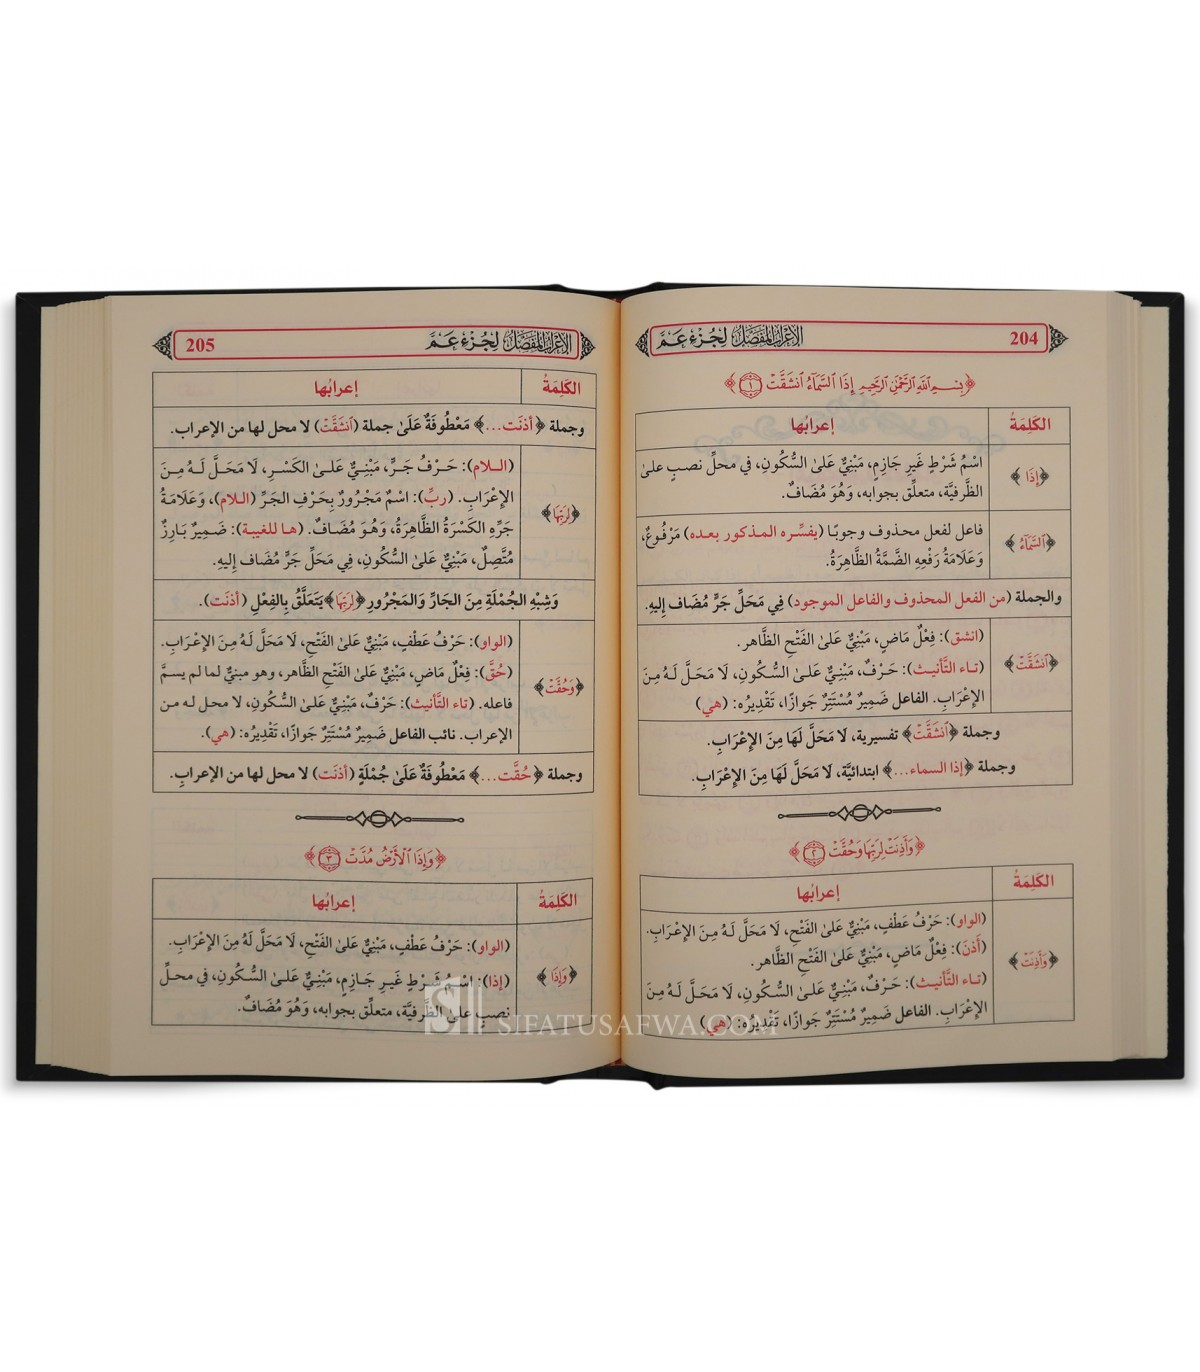 204 الإعراب المفصل لجزء عم
﴿بِسۡمِ ٱللَّهِ ٱلرَّحۡمَٰنِ ٱلرَّحِيمِ إِذَا ٱلسَّمَآءُ ٱنشَقَّتۡ ١﴾
الكَلِمَةُ إعرابُها
﴿إِذَا﴾ اسْمُ شَرْطٍ غَيرِ جَازِمٍ، مَبْنِيٌّ عَلَىٰ السُّكُونِ، في محلِّ نصبٍ علىٰ
الظَّرفيَّة، متعلِّق بجوابه، وَهُوَ مُضَافٌ.
﴿ٱلسَّمَآءُ﴾ فاعل لفعل محذوف وجوبًا (يفسِّره المذكور بعده) مَرْفُوعٌ،
وَعَلَامَةُ رَفْعِهِ الضَّمَّةُ الظَّاهِرَةُ.
والجملة (من الفعل المحذوف والفاعل الموجود) فِي مَحَلِّ جَرٍّ مُضَاف إليهِ.
﴿ٱنشَقَّتۡ﴾ (انشق): فِعْلٌ مَاضٍ، مَبْنِيٌّ عَلَىٰ الفَتْحِ الظَّاهر.
(تاء التَّأنيث): حَرْفٌ، مَبْنِيٌّ عَلَىٰ السُّكُونِ، لَا مَحَلَّ لَهُ مِنَ
الإِعْرَابِ. الفاعل ضَمِيرٌ مُسْتَتِرٌ جَوازًا، تَقْدِيرُه: (هي)
وجملة ﴿ٱنشَقَّتۡ﴾ تفسيرية، لَا مَحَلَّ لَهَا مِنَ الإِعْرَابِ.
وجملة ﴿إذا السماء...﴾ ابتدائيَّة، لَا مَحَلَّ لَهَا مِنَ الإِعْرَابِ.
﴿وَأَذِنَتۡ لِرَبِّهَا وَحُقَّتۡ ٢﴾
الكَلِمَةُ إعرابُها
﴿وَأَذِنَتۡ﴾ (الواو): حَرْفُ عَطْفٍ، مَبْنِيٌّ عَلَىٰ الفَتْحِ، لَا مَحَلَّ لَهُ مِنَ الإِعْرَابِ.
(أَذنَ): فِعْلٌ مَاضٍ، مَبْنِيٌّ عَلَىٰ الفَتْحِ الظاهر.
(تاء التَّأنيث): حَرْفٌ، مَبْنِيٌّ عَلَىٰ السُّكُونِ، لَا مَحَلَّ لَهُ مِنَ
الإِعْرَابِ. الفاعل ضَمِيرٌ مُسْتَتِرٌ جَوازًا، تَقْدِيرُه: (هي)
الإعراب المفصل لجزء عم 205
الكَلِمَةُ إعرابُها
وجملة ﴿أذنَت...﴾ مَعْطُوفَةٌ عَلَىٰ جملة (ٱنشَقَّتۡ) لا محل لها من الإعراب.
﴿لِرَبِّهَا﴾ (الـلام): حَرْفُ جَرٍّ، مَبْنِيٌّ عَلَىٰ الكَسْرِ، لَا مَحَلَّ لَهُ مِنَ
الإِعْرَابِ. (ربِّ): اسْمٌ مَجْرُورٌ بِحَرْفِ الجَرِّ (الـلام)، وَعَلَامَةُ
جَرِّهِ الكَسْرَةُ الظَّاهِرَةُ، وَهُوَ مُضَافٌ. (هـا للغيبة): ضَمِيرٌ بَارِزٌ
مُتَّصِلٌ، مَبْنِيٌّ عَلَىٰ السُّكُونِ، فِي مَحَلِّ جَرٍّ مُضَاف إليهِ.
وَشِبْهِ الجُمْلَةِ مِنَ الجَارِّ وَالمَجْرُورِ ﴿لِرَبِّهَا﴾ يَتَعَلَّقُ بِالفِعْلِ (أذنَت).
﴿وَحُقَّتۡ﴾ (الواو): حَرْفُ عَطْفٍ، مَبْنِيٌّ عَلَىٰ الفَتْحِ، لَا مَحَلَّ لَهُ مِنَ الإِعْرَابِ.
(حُقَّ): فِعْلٌ مَاضٍ، مَبْنِيٌّ عَلَىٰ الفَتْحِ الظَّاهر، وهو مبنيٌّ لما لم يسمَّ
فاعله. (تاء التَّأنيث): حَرْفٌ، مَبْنِيٌّ عَلَىٰ السُّكُونِ، لا محل له من
الإعراب. نائب الفاعل ضَمِيرٌ مُسْتَتِرٌ جَوازًا، تَقْدِيرُه: (هي).
وجملة ﴿حُقَّت...﴾ مَعْطُوفَةٌ عَلَىٰ جُمْلَةِ (أذنَت) لا محل لها من الإعرابِ.
﴿وَإِذَا ٱلۡأَرۡضُ مُدَّتۡ ٣﴾
الكَلِمَةُ إعرابُها
﴿وَإِذَا﴾ (الواو): حَرْفُ عَطْفٍ، مَبْنِيٌّ عَلَىٰ الفَتْحِ، لَا مَحَلَّ لَهُ مِنَ الإِعْرَابِ.
(إذا): اسْمُ شَرْطٍ غَيرِ جَازِمٍ، مَبْنِيٌّ عَلَىٰ السُّكُونِ، في محلِّ
نصبٍ علىٰ الظَّرفيَّة، متعلِّق بجوابه، وَهُوَ مُضَافٌ.
SIFATUSAFWA.COM